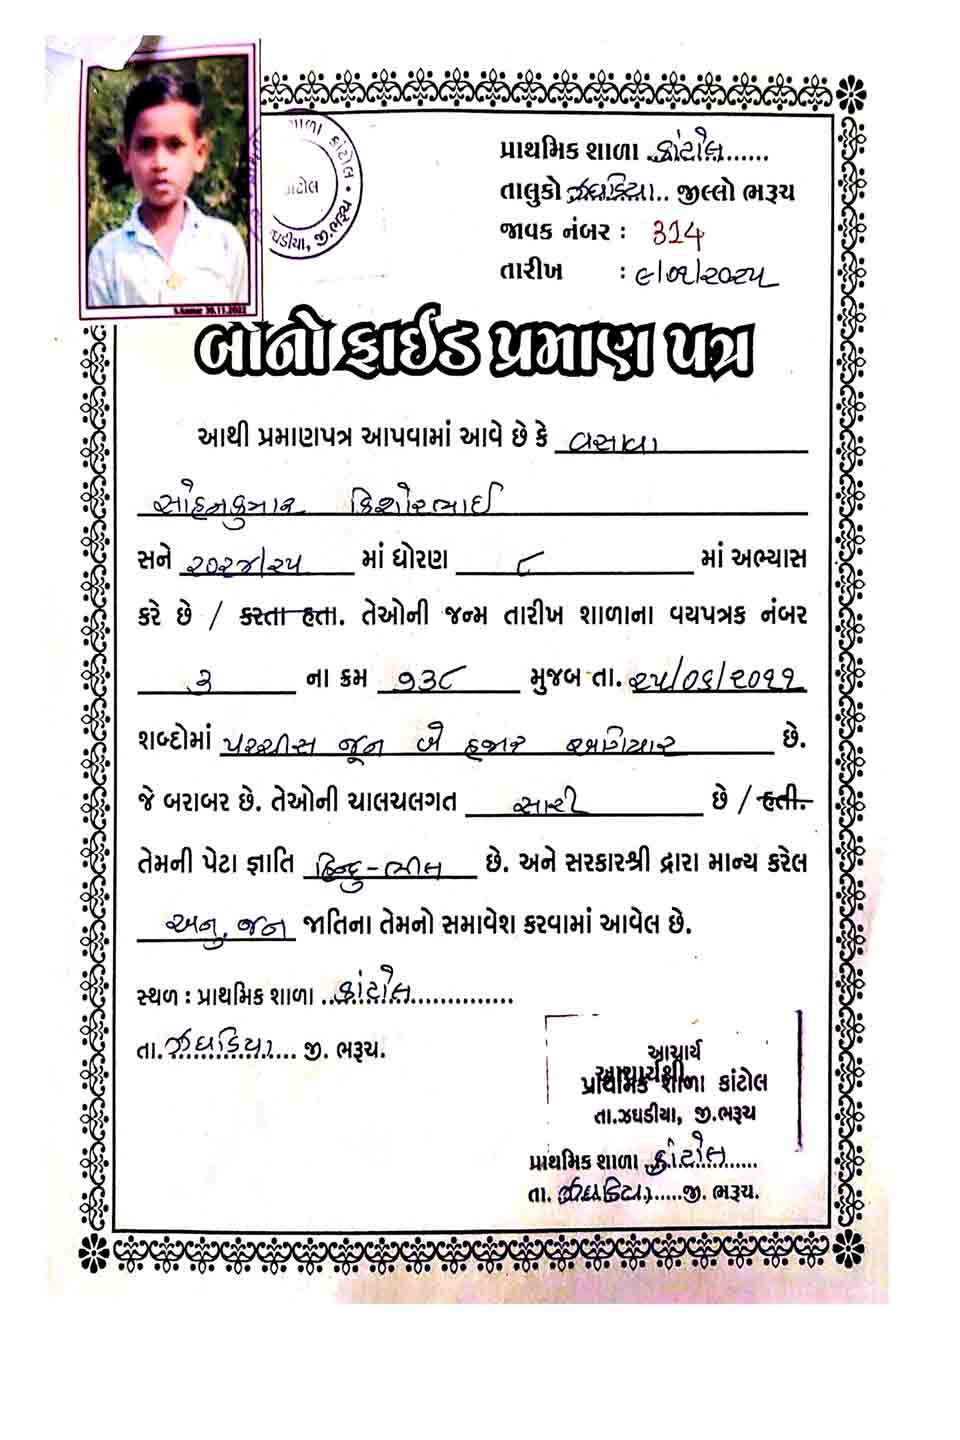 પ્રાથમિક શાળા કાંટોલ......
તાલુકો ઝઘડિયા.. જીલ્લો ભરૂચ
જાવક નંબર : 314
તારીખ : ૯/૦૧/૨૦૨૫
શાળા કાંટોલ
ઘડીયા, જી.ભરૂચ
S.kumar 30.11.2022
બોનોફાઈડ પ્રમાણ પત્ર
આથી પ્રમાણપત્ર આપવામાં આવે છે કે વસાવા
સોહનકુમાર કિશોરભાઈ
સને ૨૦૨૪/૨૫ માં ધોરણ ૮ માં અભ્યાસ
કરે છે / કરતા હતા. તેઓની જન્મ તારીખ શાળાના વયપત્રક નંબર
૩ ના ક્રમ ૧૩૮ મુજબ તા. ૨૫/૦૬/૨૦૧૧
શબ્દોમાં પચ્ચીસ જૂન બે હજાર અગિયાર છે.
જે બરાબર છે. તેઓની ચાલચલગત સારી છે / હતી.
તેમની પેટા જ્ઞાતિ હિન્દુ-ભીલ છે. અને સરકારશ્રી દ્વારા માન્ય કરેલ
અનુ. જન જાતિના તેમનો સમાવેશ કરવામાં આવેલ છે.
સ્થળ : પ્રાથમિક શાળા કાંટોલ
તા. ઝઘડિયા જી. ભરૂચ.
આચાર્ય
આચાર્યશ્રી
પ્રાથમિક શાળા કાંટોલ
તા.ઝઘડીયા, જી.ભરૂચ
પ્રાથમિક શાળા કાંટોલ
તા. ઝઘડિયા જી. ભરૂચ.